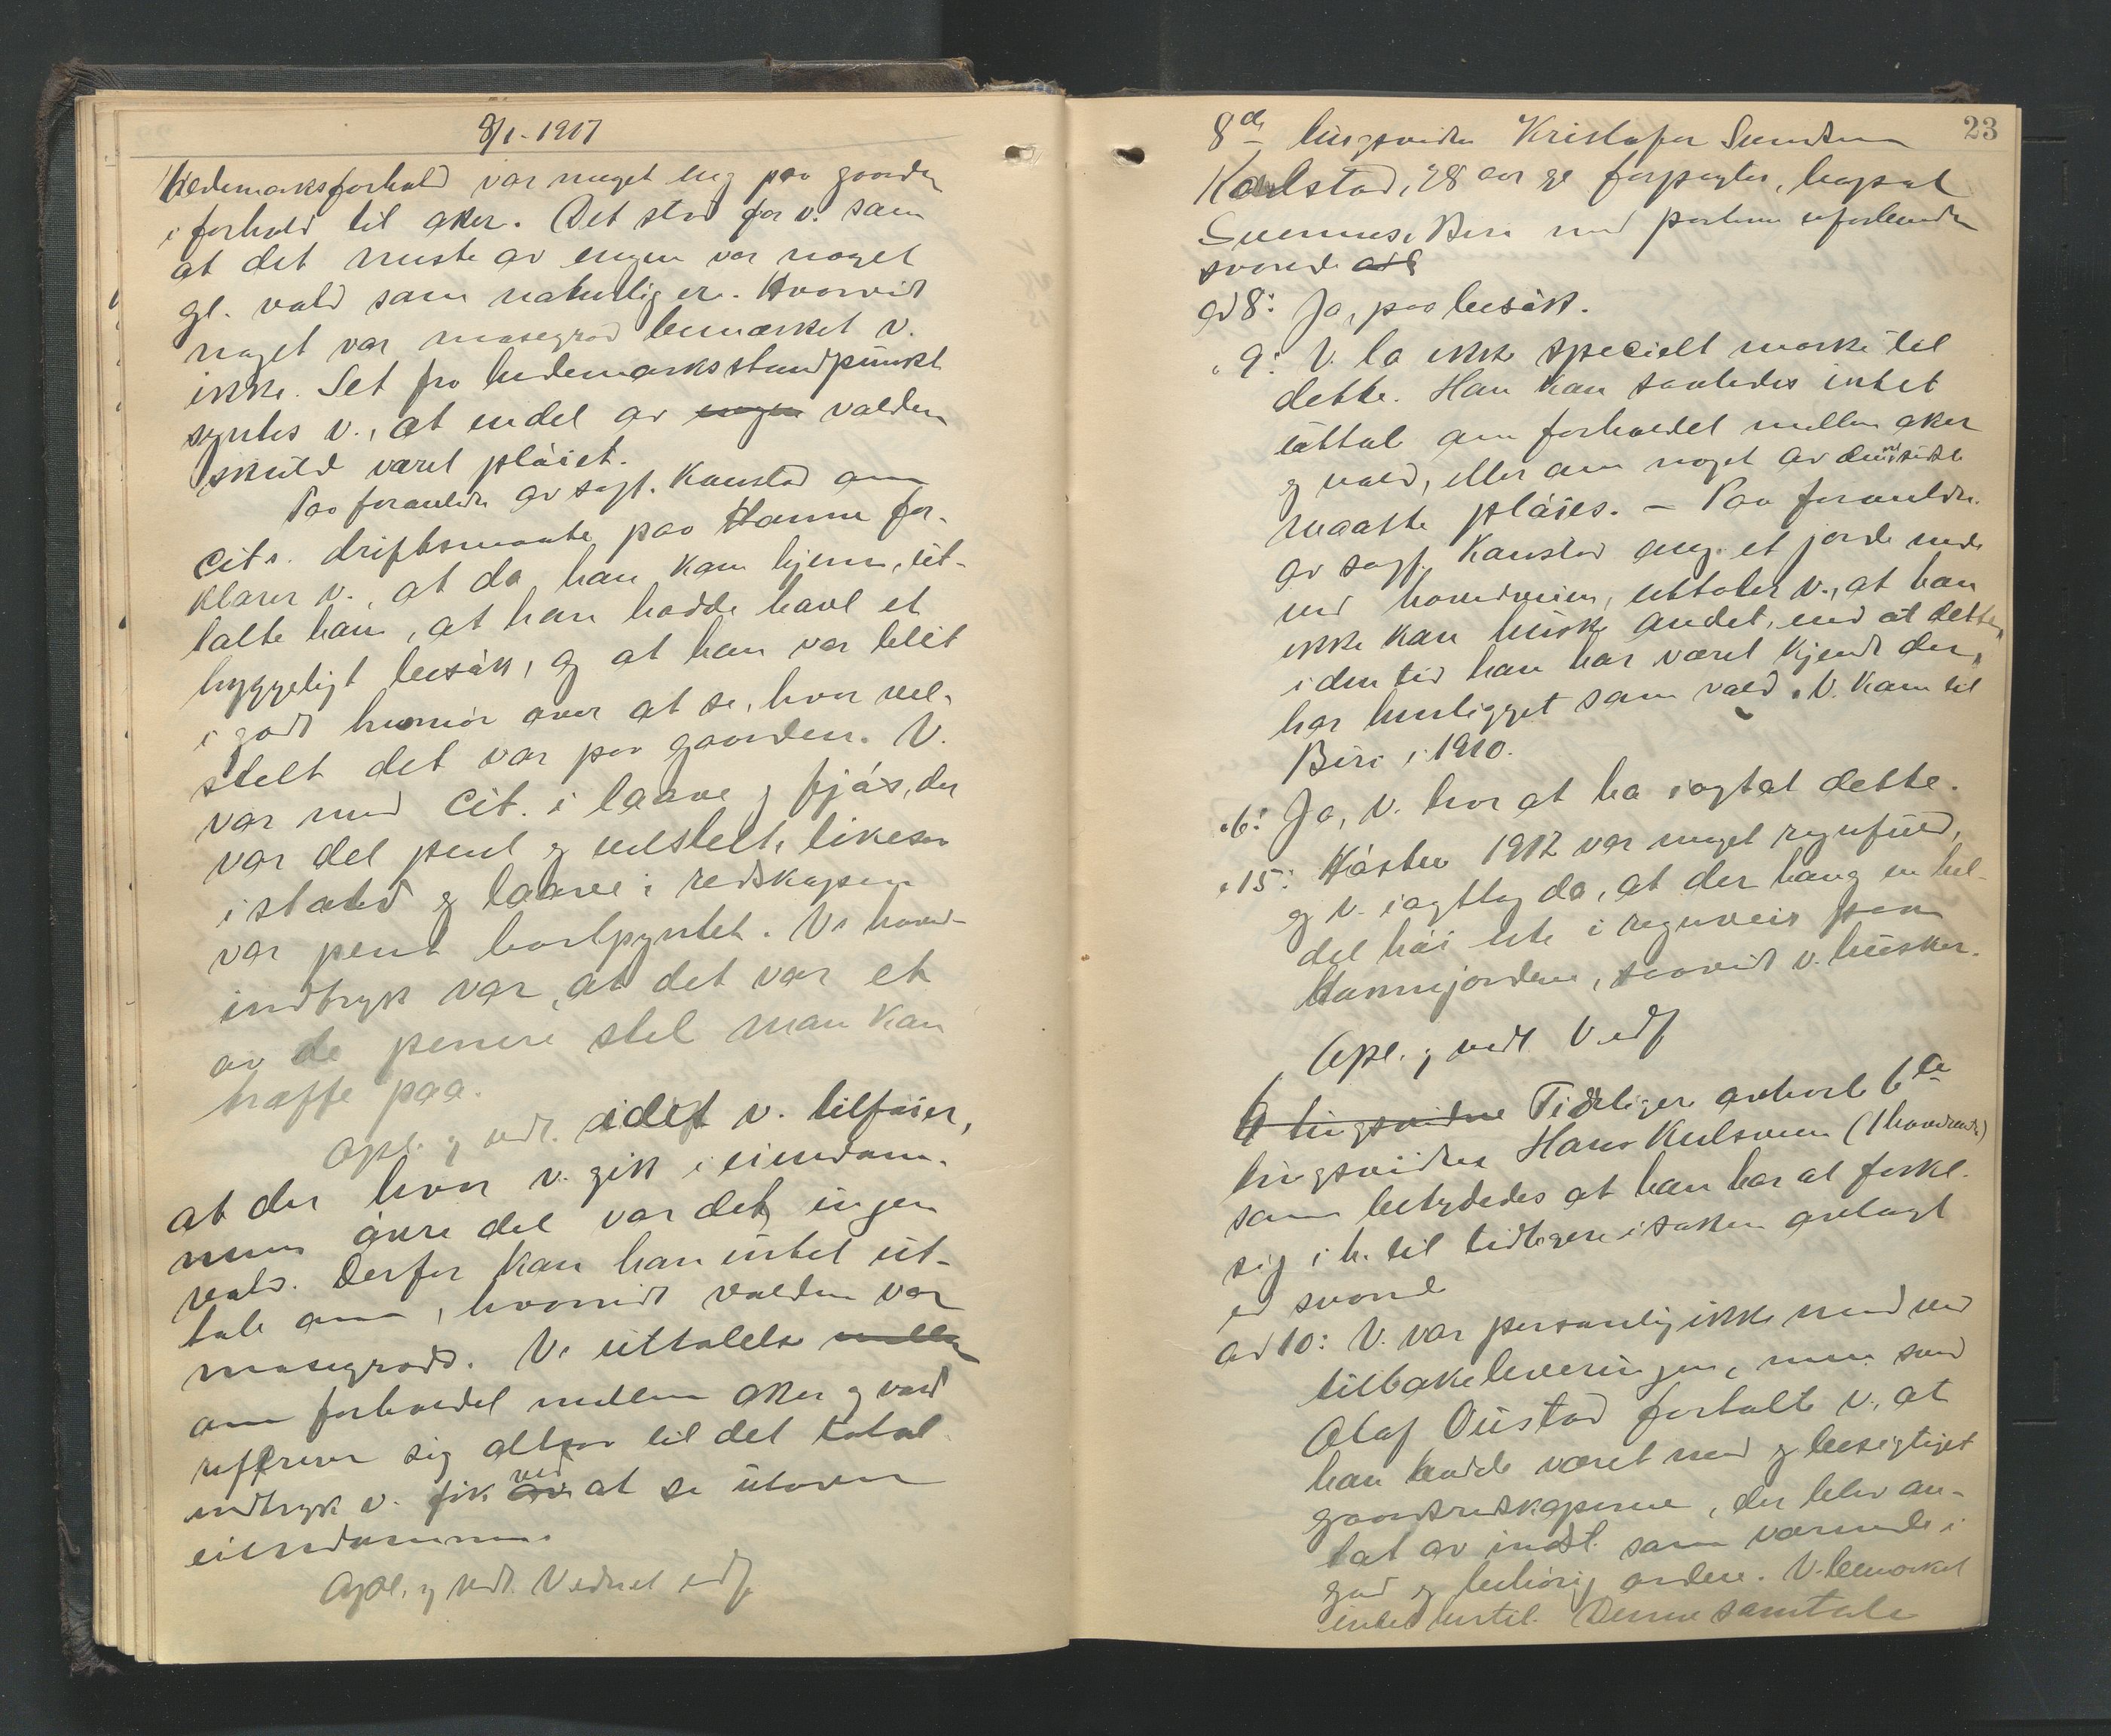 8/1-1917
Hedemarksforhold var meget eng paa gaarden
i forhold til aker. Det stod for v. som
at det meste av engen var noget
gl. vold som naturlig er. Hvorvidt
noget var mosegrod bemærket v.
ikke. Set fra hedemarksstandpunkt
syntes v., at endel av engen volden
skuld været pløiet.
Paa foranledn. av sagf. Kanstad om
cit.s driftsmaate paa Hanne for-
klarer v., at da han kom hjem, ut-
talte han, at han hadde havt et
hyggeligt besøk, og at han var blit
i godt humør over at se, hvor vel-
stelt det var paa gaarden. V.
var med cit. i laave og fjøs, der
var det pent og velstelt, likesaa
i stald og laave i redskapen
var pent bortpyntet. V.s hoved-
indtryk var, at det var et
av de penere stel man kan
træffe paa.
Opl. og vedt. idet v. tilføier,
at der hvor v. gik i eiendom-
mens øvre del var det ingen
vold. Derfor kan han intet ut-
tale om, hvorvidt volden var
mosegrodd. V.s uttalelse mellem
om forholdet mellem aker og vold
refererer sig altsaa til det total
indtryk v. fik av ved at se utover
eiendommen.
Opl. og vedt. Vidnet edf.
23
8de tingsvidne Kristofer Sundsen
Karlstad, 28 aar gl forpagter, bopæl
Svennes, Biri med partene uforbunden
svored
ad 8: Ja, paa besøk.
" 9: V. la ikke specielt merke til
dette. Han kan saaledes intet
uttale om forholdet mellem aker
og vold, eller om noget av den sidste
maatte pløies. - Paa foranledn.
av sagf. Kanstad ang. et jorde nede
ved hovedveien, uttaler v., at han
ikke kan huske andet, end at dette,
i den tid han har været kjendt der,
har henligget som vold. V. kom til
Biri i 1910.
" 6: Ja, v. tror at ha iagtat dette.
" 15: Høsten 1912 var meget regnfuld,
og v. iagttog da, at der hang en hel
del høi ute i regnveir paa
Hannejordene, saavidt v. husker.
Opl. og vedt. V. edf
9 tingsvidne Tidligere avhørt 6te
tingsvidne Hans Kulsveen (1 hovedvidne)
som betydedes at han har at forkl.
sig i h. til tidligere i saken avlagt
ed svored
ad 10: V. var personlig ikke med ved
tilbakeleveringen, men svend
Olaf Oustad fortalte v., at
han hadde været med og besigtiget
gaardsredskaperne, der blev an-
tat av indst. som værende i
god og behørig orden. V. bemerket
intet hertil. Denne samtale